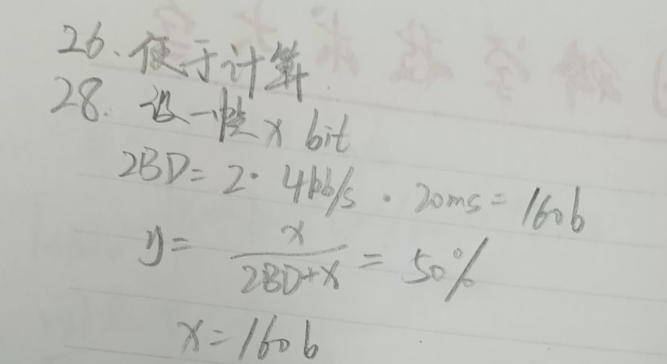 26. 便于计算
28. 设一帧 x bit
2BD = 2 · 4kb/s · 20ms = 160b
y = x / (2BD+x) = 50%
x = 160b